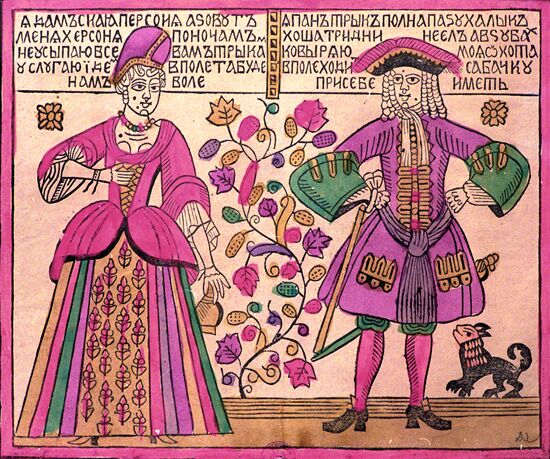 Я ДАМЪСКАЯ ПЕРСОНЯ А ЗОВУТЪ
МЕНЯ ХЕРСОНЯ ПО НОЧАМЪ
НЕ УСЫПАЮ ВСЕ ВАМЪ ТРЫКА
УСЛУГАЮ ІДЕ В ПОЛЕ ТА БУДЕ
НАМЪ ВОЛЕ
Я ПАН ТРЫК ПОЛНА ПАЗУХА ЛЫК
ХОША ТРИ ДНИ НЕ ЕЛЪ А В ЗУБАХ
КОВЫРЯЮ МОЯ ОХОТА
В ПОЛЕ ХОДИ САБАЧКУ
ПРИ СЕБЕ ИМЕТЬ